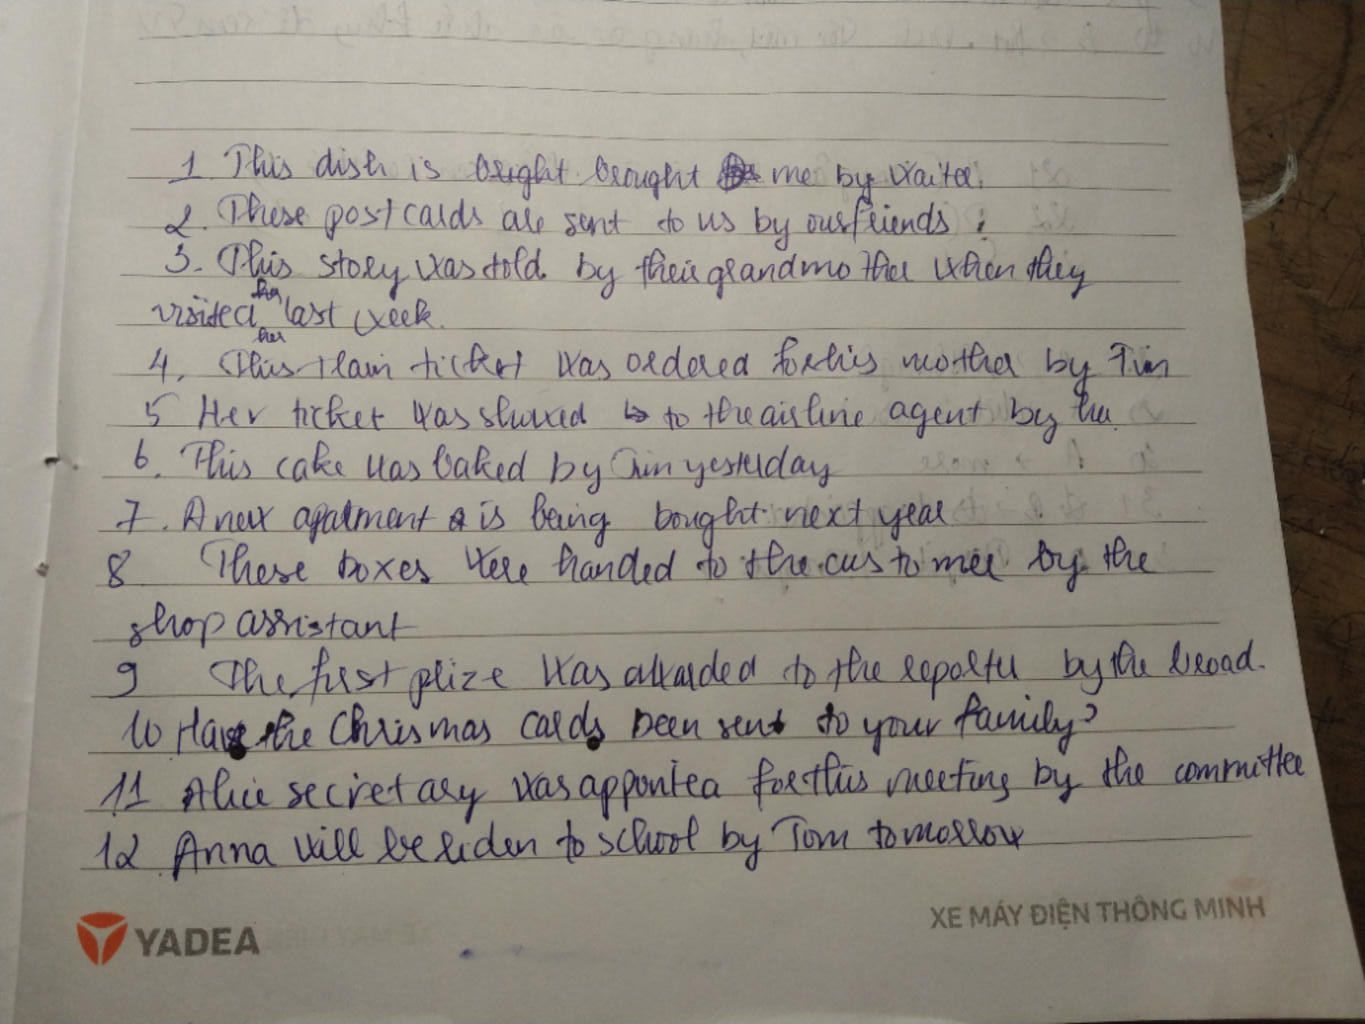 1. This dish is bright brought me by waiter.
2. These postcards are sent to us by our friends.
3. This story was told by their grandmother when they
visited her last week.
her
4. This train ticket was ordered for his mother by Tim
5 Her ticket was showed to the airline agent by her
6. This cake was baked by Tim yesterday
7. A new apartment is being bought next year
8 These boxes were handed to the customer by the
shop assistant
9 The first prize was awarded to the reporter by the broad.
10 Have the Chrismas cards been sent to your family?
11 Alice secretary was appointed for this meeting by the committee
12 Anna will be riden to school by Tom tomorrow
YADEA
XE MÁY ĐIỆN THÔNG MINH